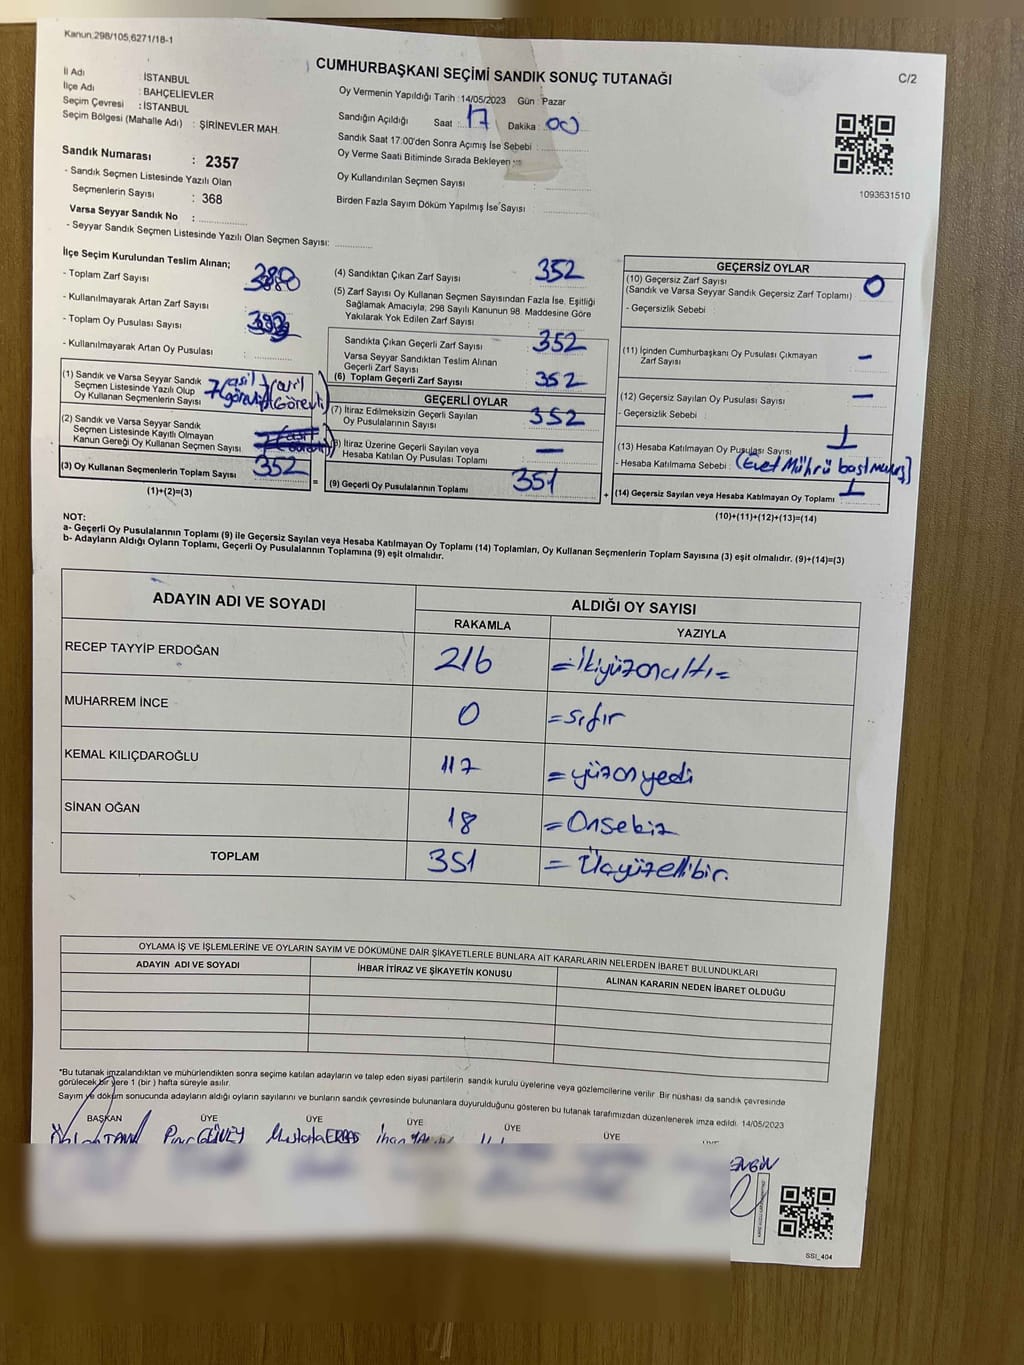 Kanun.298/105,6271/18-1
CUMHURBAŞKANI SEÇİMİ SANDIK SONUÇ TUTANAĞI
C/2
İl Adı : İSTANBUL
İlçe Adı : BAHÇELİEVLER
Seçim Çevresi : İSTANBUL
Seçim Bölgesi (Mahalle Adı) : ŞİRİNEVLER MAH.
Oy Vermenin Yapıldığı Tarih :14/05/2023 Gün : Pazar
Sandığın Açıldığı Saat : 17 Dakika : 00
Sandık Saat 17:00'den Sonra Açımış İse Sebebi :
Oy Verme Saati Bitiminde Sırada Bekleyen
Oy Kullandırılan Seçmen Sayısı :
Birden Fazla Sayım Döküm Yapılmış İse Sayısı :
1093631510
Sandık Numarası : 2357
- Sandık Seçmen Listesinde Yazılı Olan
Seçmenlerin Sayısı : 368
Varsa Seyyar Sandık No :
- Seyyar Sandık Seçmen Listesinde Yazılı Olan Seçmen Sayısı:
İlçe Seçim Kurulundan Teslim Alınan;
- Toplam Zarf Sayısı :
- Kullanılmayarak Artan Zarf Sayısı :
- Toplam Oy Pusulası Sayısı :
- Kullanılmayarak Artan Oy Pusulası :
(1) Sandık ve Varsa Seyyar Sandık
Seçmen Listesinde Yazılı Olup
Oy Kullanan Seçmenlerin Sayısı
(2) Sandık ve Varsa Seyyar Sandık
Seçmen Listesinde Kayıtlı Olmayan
Kanun Gereği Oy Kullanan Seçmen Sayısı
(3) Oy Kullanan Seçmenlerin Toplam Sayısı 352
(1)+(2)=(3)
(4) Sandıktan Çıkan Zarf Sayısı : 352
(5) Zarf Sayısı Oy Kullanan Seçmen Sayısından Fazla İse, Eşitliği
Sağlamak Amacıyla, 298 Sayılı Kanunun 98. Maddesine Göre
Yakılarak Yok Edilen Zarf Sayısı :
Sandıkta Çıkan Geçerli Zarf Sayısı : 352
Varsa Seyyar Sandıktan Teslim Alınan
Geçerli Zarf Sayısı :
(6) Toplam Geçerli Zarf Sayısı : 352
GEÇERLİ OYLAR
(7) İtiraz Edilmeksizin Geçerli Sayılan
Oy Pusulalarının Sayısı : 352
(8) İtiraz Üzerine Geçerli Sayılan veya
Hesaba Katılan Oy Pusulası Toplamı : —
(9) Geçerli Oy Pusulalarının Toplamı : 351
GEÇERSİZ OYLAR
(10) Geçersiz Zarf Sayısı : 0
(Sandık ve Varsa Seyyar Sandık Geçersiz Zarf Toplamı)
- Geçersizlik Sebebi :
(11) İçinden Cumhurbaşkanı Oy Pusulası Çıkmayan
Zarf Sayısı : —
(12) Geçersiz Sayılan Oy Pusulası Sayısı : —
- Geçersizlik Sebebi :
(13) Hesaba Katılmayan Oy Pusulası Sayısı : 1
- Hesaba Katılmama Sebebi : (Evet Mührü
(14) Geçersiz Sayılan veya Hesaba Katılmayan Oy Toplamı : 1
(10)+(11)+(12)+(13)=(14)
NOT:
a- Geçerli Oy Pusulalarının Toplamı (9) ile Geçersiz Sayılan veya Hesaba Katılmayan Oy Toplamı (14) Toplamları, Oy Kullanan Seçmenlerin Toplam Sayısına (3) eşit olmalıdır. (9)+(14)=(3)
b- Adayların Aldığı Oyların Toplamı, Geçerli Oy Pusulalarının Toplamına (9) eşit olmalıdır.
ADAYIN ADI VE SOYADI ALDIĞI OY SAYISI
RAKAMLA YAZIYLA
RECEP TAYYİP ERDOĞAN 216 = İkiyüzonaltı =
MUHARREM İNCE 0 = sıfır
KEMAL KILIÇDAROĞLU 117 = yüzonyedi
SİNAN OĞAN 18 = Onsekiz
TOPLAM 351 = Üçyüzellibir.
OYLAMA İŞ VE İŞLEMLERİNE VE OYLARIN SAYIM VE DÖKÜMÜNE DAİR ŞİKAYETLERLE BUNLARA AİT KARARLARIN NELERDEN İBARET BULUNDUKLARI
ADAYIN ADI VE SOYADI İHBAR İTİRAZ VE ŞİKAYETİN KONUSU ALINAN KARARIN NEDEN İBARET OLDUĞU
*Bu tutanak imzalandıktan ve mühürlendikten sonra seçime katılan adayların ve talep eden siyasi partilerin sandık kurulu üyelerine veya gözlemcilerine verilir. Bir nüshası da sandık çevresinde
görülecek bir yere 1 (bir ) hafta süreyle asılır.
Sayım ve döküm sonucunda adayların aldığı oyların sayılarını ve bunların sandık çevresinde bulunanlara duyurulduğunu gösteren bu tutanak tarafımızdan düzenlenerek imza edildi. 14/05/2023
BAŞKAN ÜYE ÜYE ÜYE ÜYE ÜYE
Mustafa ERBAŞ İhan
SSI_404